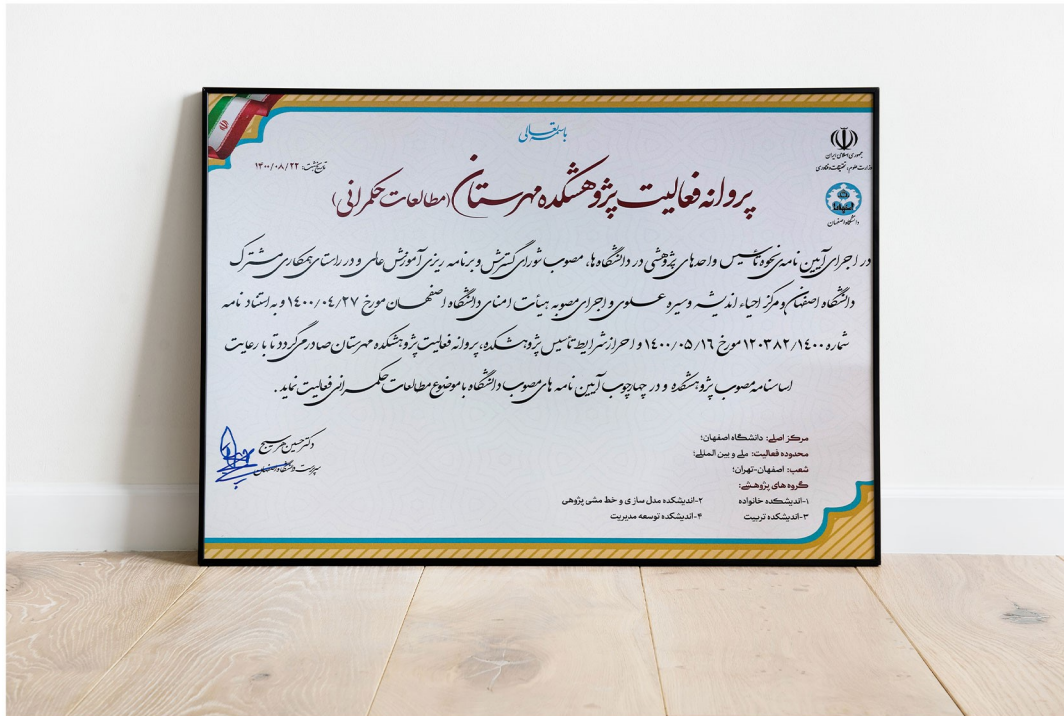 باسمه تعالی
جمهوری اسلامی ایران
وزارت علوم، تحقیقات و فناوری
دانشگاه اصفهان
تاریخ ثبت: ۱۴۰۰/۰۸/۲۲
پروانه فعالیت پژوهشکده مهرستان (مطالعات حکمرانی)
در اجرای آیین نامه نحوه تأسیس واحدهای پژوهشی در دانشگاه ها، مصوب شورای گسترش و برنامه ریزی آموزش عالی و در راستای همکاری مشترک
دانشگاه اصفهان و مرکز احیاء اندیشه و سیره علوی و اجرای مصوبه هیأت امنای دانشگاه اصفهان مورخ ۱۴۰۰/۰۴/۲۷ و به استناد نامه
شماره ۱۲۰۳۸۲/۱۴۰۰ مورخ ۱۴۰۰/۰۵/۱۶ و احراز شرایط تأسیس پژوهشکده، پروانه فعالیت پژوهشکده مهرستان صادر می گردد تا با رعایت
اساسنامه مصوب پژوهشکده و در چهارچوب آیین نامه های مصوب دانشگاه با موضوع مطالعات حکمرانی فعالیت نماید.
دکتر حسین هرسیج
سرپرست دانشگاه اصفهان
مرکز اصلی: دانشگاه اصفهان؛
محدوده فعالیت: ملی و بین المللی؛
شعب: اصفهان-تهران؛
گروه های پژوهشی:
۱-اندیشکده خانواده ۲-اندیشکده مدل سازی و خط مشی پژوهی
۳-اندیشکده تربیت ۴-اندیشکده توسعه مدیریت